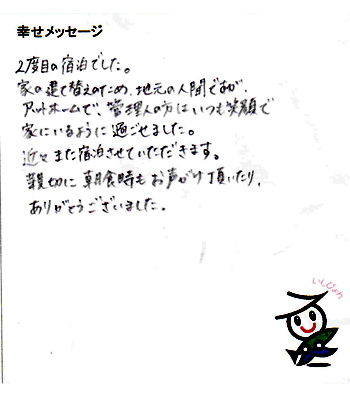 幸せメッセージ
2度目の宿泊でした。
家の建て替えのため、地元の人間ですが、
アットホームで、管理人の方はいつも笑顔で
家にいるように過ごせました。
近々また宿泊させていただきます。
親切に朝食時もお声がけ頂いたり、
ありがとうございました。